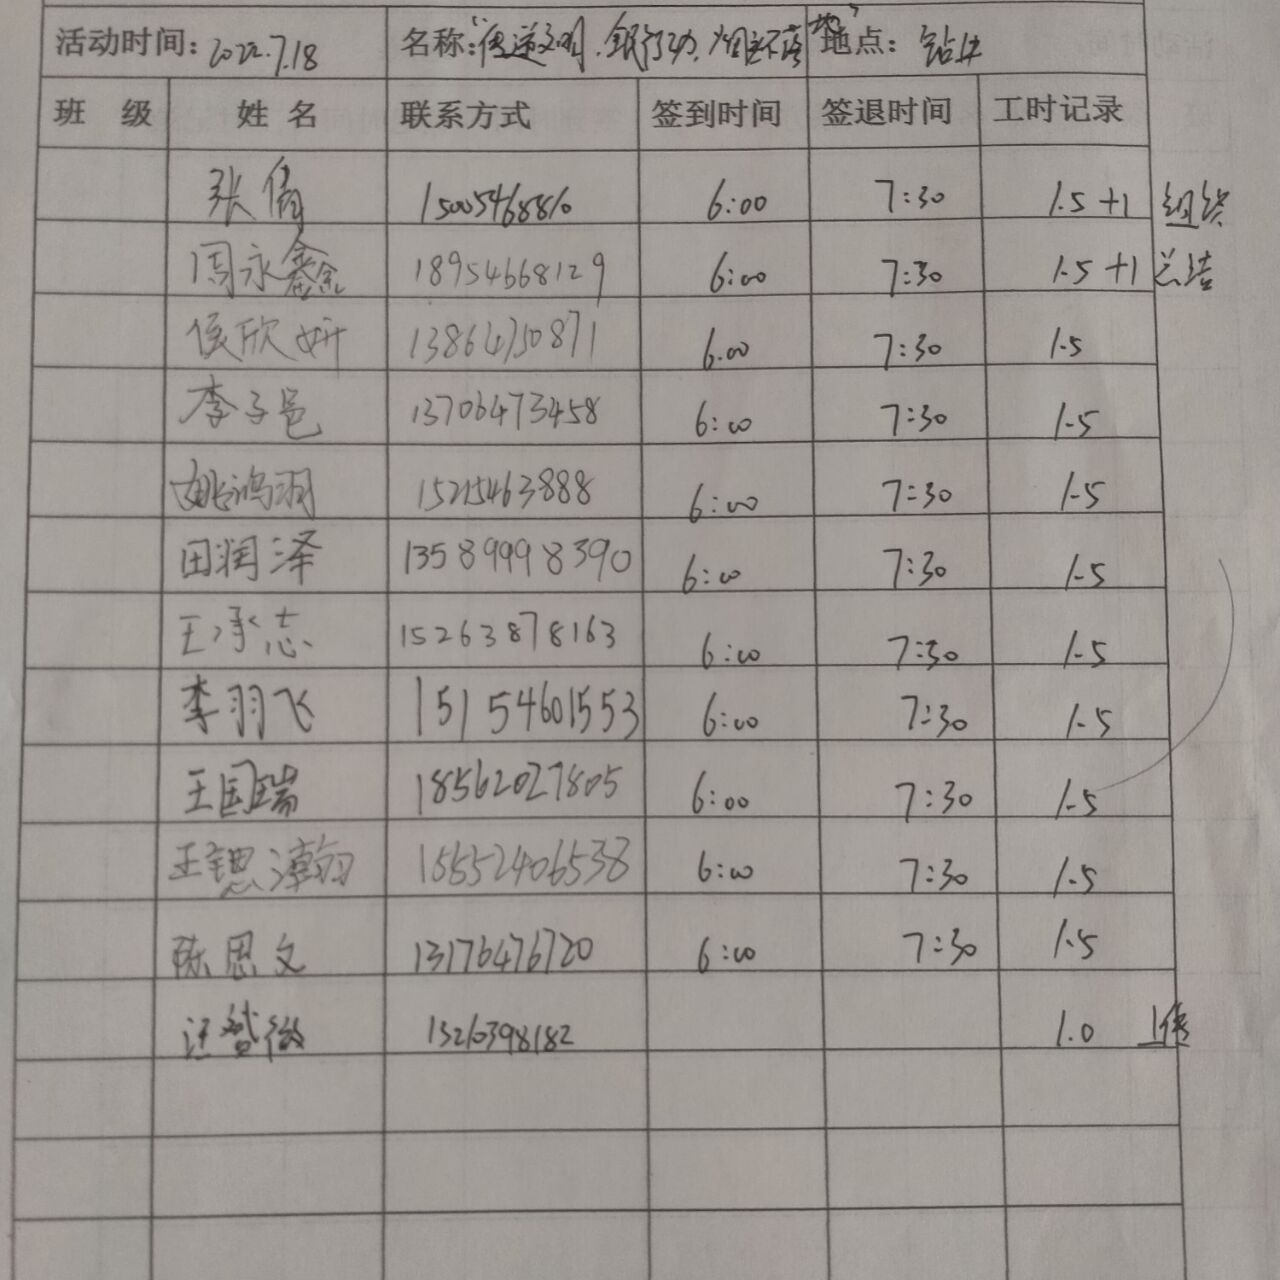 活动时间：2022.7.18 名称："传递文明，银行动，烟蒂不落地" 地点：钻井
班 级 姓 名 联系方式 签到时间 签退时间 工时记录
张倩 15005468810 6:00 7:30 1.5 +1 组织
周永鑫 18954668129 6:00 7:30 1.5 +1 总结
侯欣妍 13864750871 6.00 7:30 1.5
李子邑 13706473458 6:00 7:30 1.5
姚鸿润 15215463888 6:00 7:30 1.5
田润泽 13589998390 6:00 7:30 1.5
王承志 15263878163 6:00 7:30 1.5
李羽飞 15154601553 6:00 7:30 1.5
王国瑞 18562027805 6:00 7:30 1.5
王锶漳翰 15552406538 6:00 7:30 1.5
陈思文 13176476720 6:00 7:30 1.5
汪暂微 13210398182 1.0 上传